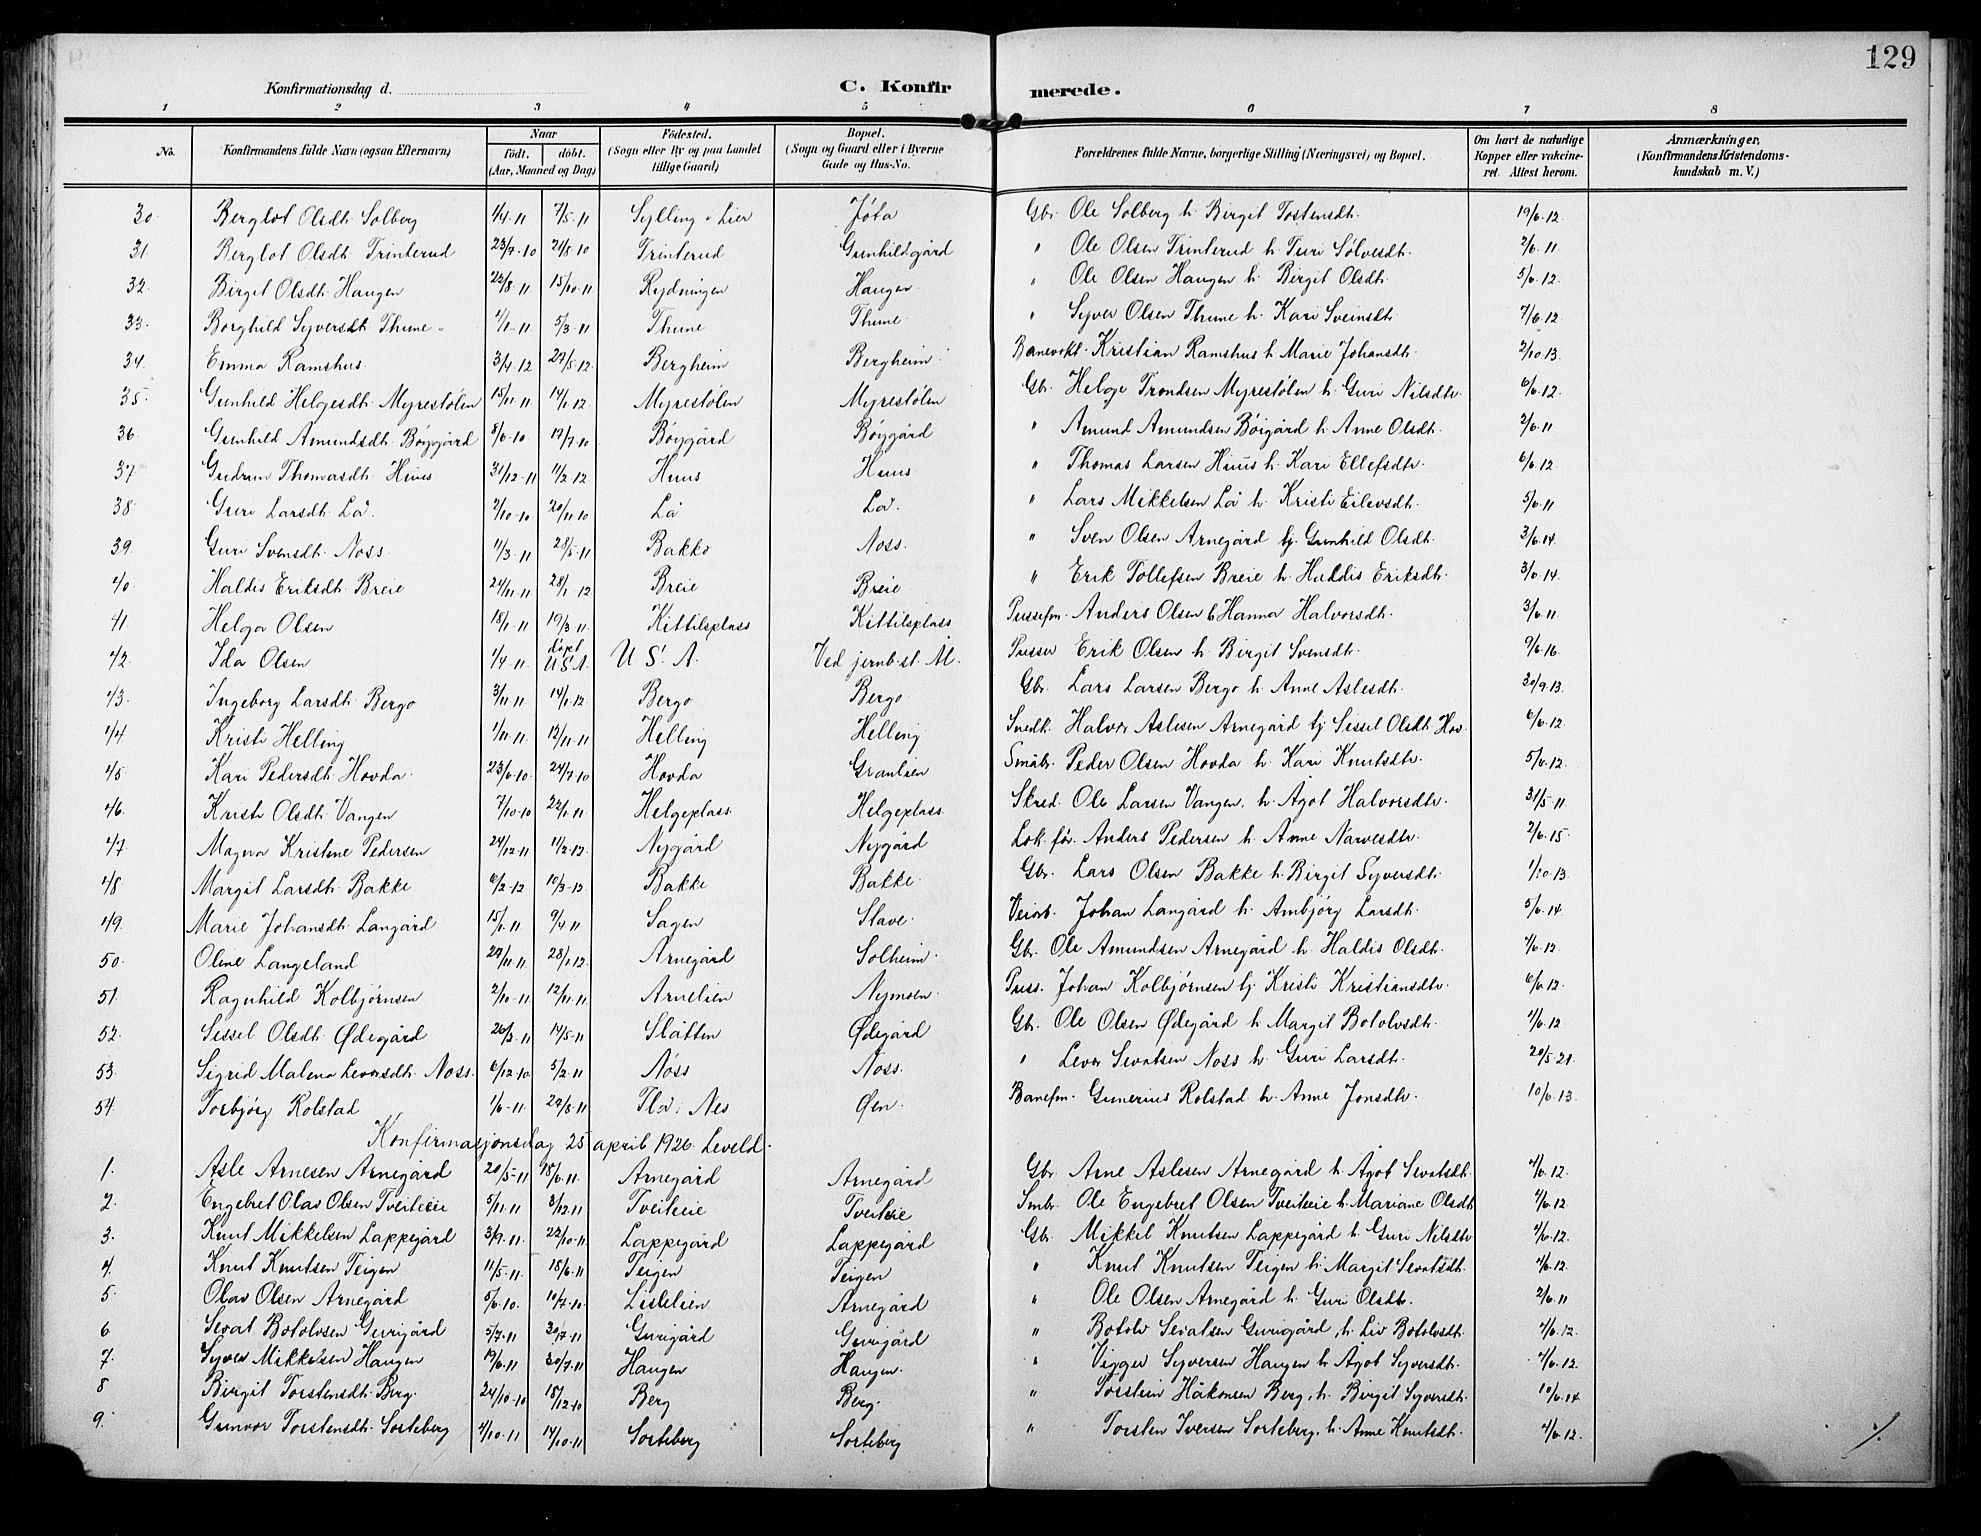 129
Konfirmationsdag d. C. Konfir merede.
1 2 3 4 5 6 7 8
No. Konfirmandens fulde Navn (ogsaa Efternavn) Naar født, døbt. (Aar, Maaned og Dag) Födested. (Sogn eller By og paa Landet tillige Gaard) Bopæl. (Sogn og Gaard eller i Byerne Gade og Hus-No. Forældrenes fulde Navne, borgerlige Stilling (Næringsvei) og Bopæl. Om havt de naturlige Kopper eller vakcineret. Attest herom. Anmærkninger. (Konfirmandens Kristendomskundskab m. V.)
30 Bergljot Olsdt. Solberg 1/4 11 7/5 11 Sylling i Lier Jøta Gbr. Ole Solberg h. Birgit Tostensdt. 19/6 12.
31 Bergljot Olsdt. Trinterud 23/7 10 21/8 10 Trinterud Gunhildgård " Ole Olsen Trinterud h. Turi Sølvesdt. 2/6 11.
32. Birgit Olsdt. Haugen 22/8 11 15/10 11 Rydningen Haugen " Ole Olsen Haugen h. Birgit Olsdt. 5/6 12.
33. Borghild Syversdt. Thune 1/1 11 5/3 11 Thune Thune " Syver Olsen Thune h. Kari Sveinsdt. 7/6 12.
34. Emma Ramshus 3/4 12 27/5 12 Bergheim Bergheim Banevokt. Kristian Ramshus h. Marie Johansdt. 2/10 13.
35. Gunhild Helgesdt. Myrestølen 15/11 11 14/1 12 Myrestølen Myrestølen Gbr. Helge Trondsen Myrestølen h. Guri Nilsdtr. 6/6 12.
36 Gunhild Amundsdt. Bøygård 8/6 10 17/7 10 Bøygård Bøygård " Amund Amundsen Bøigård h. Anne Olsdt. 2/6 11
37 Gudrun Thomasdt. Huus 31/12 11 11/2 12 Huus Huus " Thomas Larsen Huus h. Kari Ellefsdtr. 6/6 12.
38 Guri Larsdt. Lå. 2/10 10 20/11 10 Lå Lå. " Lars Mikkelsen Lå h. Kristi Eilevsdt. 5/6 11
39. Guri Svensdt. Noss. 11/3 11 28/5 11 Bakko Noss. " Sven Olsen Arnegård hj. Gunhild Olsdt. 3/6 14.
40 Haldis Eriksdt. Breie 24/11 11 28/1 12 Breie Breie " Erik Tollefsen Breie h. Haldis Eriksdt. 3/6 14.
41. Helga Olsen 18/1 11 19/3 11. Kittilsplass Kittilsplass Pussefm. Anders Olsen h Hanna Halvorsdt. 3/6 11.
42 Ida Olsen 1/4 11 døpt U S A. U S. A. Ved jernb. st. Ål. Pusser Erik Olsen h. Birgit Svensdt. 9/6 16
43. Ingeborg Larsdt. Bergo 3/11 11 14/1 12. Bergo Bergo Gbr. Lars Larsen Bergo h. Anne Aslesdt. 30/9 13.
44 Kristi Helling 1/11 11. 12/11 11 Helling Helling Snedk. Halvor Aslesen Arnegård hj Sissel Olsdt. Hov. 6/6 12.
45 Kari Pedersdt. Hovda. 23/6 10 24/7 10 Hovda Granlien Småbr. Peder Olsen Hovda h. Kari Knutsdtr. 5/6 12.
46. Kristi Olsdt. Vangen 7/10 10 22/1 11. Helgeplass. Helgeplass. Skred. Ole Larsen Vangen. h. Ågot Halvorsdtr. 31/5 11.
47. Magna Kristine Pedersen 24/12 11 11/2 12. Nygård Nygård Lok.før. Anders Pedersen h. Anne Narvesdtr. 2/6 15.
48 Margit Larsdt. Bakke 6/2 12 10/3 12. Bakke Bakke Gbr. Lars Olsen Bakke h. Birgit Syversdt. 1/10 13.
49. Marie Johansdt. Langård 15/1 11 9/4 11 Sagen Slave. Veiarb. Johan Langård h. Ambjørg Larsdt. 5/6 14.
50. Oline Langeland 27/11 11. 28/1 12. Arnegård Solheim Gbr. Ole Amundsen Arnegård h. Haldis Olsdt. 4/6 12.
51. Ragnhild Kolbjørnsen 2/10 11 12/11 11 Arnelien Nymoen. Puss. Johan Kolbjørnsen hj. Kristi Kristiansdtr. 6/6 12.
52. Sissel Olsdt. Ødegård 26/3 11 14/5 11 Slåtten Ødegård Gbr. Ole Olsen Ødegård h. Margit Botolvsdt. 4/6 12
53. Sigrid Malena Leversdt. Noss. 6/12 10 5/2 11 Noss Noss. " Lever Sevatsen Noss h. Guri Larsdt. 20/5 21.
54. Torbjørg Rolstad 1/6 11 27/8 11 Flå. Nes Øen. Banefm. Gunerius Rolstad h. Anne Jonsdtr. 10/6 13.
Konfirmasjonsdag 25 april 1926 Leveld.
1. Asle Arnesen Arnegård 20/5 11 18/6 11. Arnegård Arnegård Gbr. Arne Aslesen Arnegård h. Ågot Sevatsdt. 4/6 12.
2. Engebret Olav Olsen Tveiteie 5/11 11 3/12 11 Tveiteie Tveiteie Smbr. Ole Engebret Olsen Tveiteie h. Mariane Olsdt. 4/6 12
3. Knut Mikkelsen Lappegård 3/9 11. 22/10 11 Lappegård Lappegård Gbr. Mikkel Knutsen Lappegård h. Guri Nilsdtr 4/6 12.
4. Knut Knutsen Teigen 11/5 11. 18/6 11 Teigen Teigen " Knut Knutsen Teigen h. Margit Sevatsdt. 4/6 12.
5. Olav Olsen Arnegård 5/6 10. 10/7 10. Lislelien Arnegård " Ole Olsen Arnegård h. Guri Olsdtr. 2/6 11
6 Sevat Botolvsen Gurigård 5/7 11 30/7 11 Gurigård Gurigård " Botolv Sevatsen Gurigård. h. Liv Botolvsdt. 4/6 12.
7. Syver Mikkelsen Haugen 19/6 11 30/7 11 Haugen Haugen. " Vigger Syversen Haugen h. Ågot Syversdt. 4/6 12.
8 Birgit Torstensdt. Berg. 24/10 10 18/12 10 Berg Berg. " Torstein Håkonsen Berg. h. Birgit Syversdt. 10/6 14
9. Gunvor Torstensdt. Sorteberg 4/10 11 14/10 11 Sorteberg Sorteberg " Torsten Iversen Sorteberg. h. Anne Knutsdt. 4/6 12. %